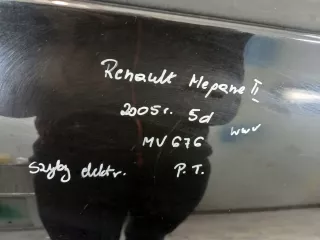 Renault Megane II
2005r. 5d
MV676
szyby elektr. P.T.